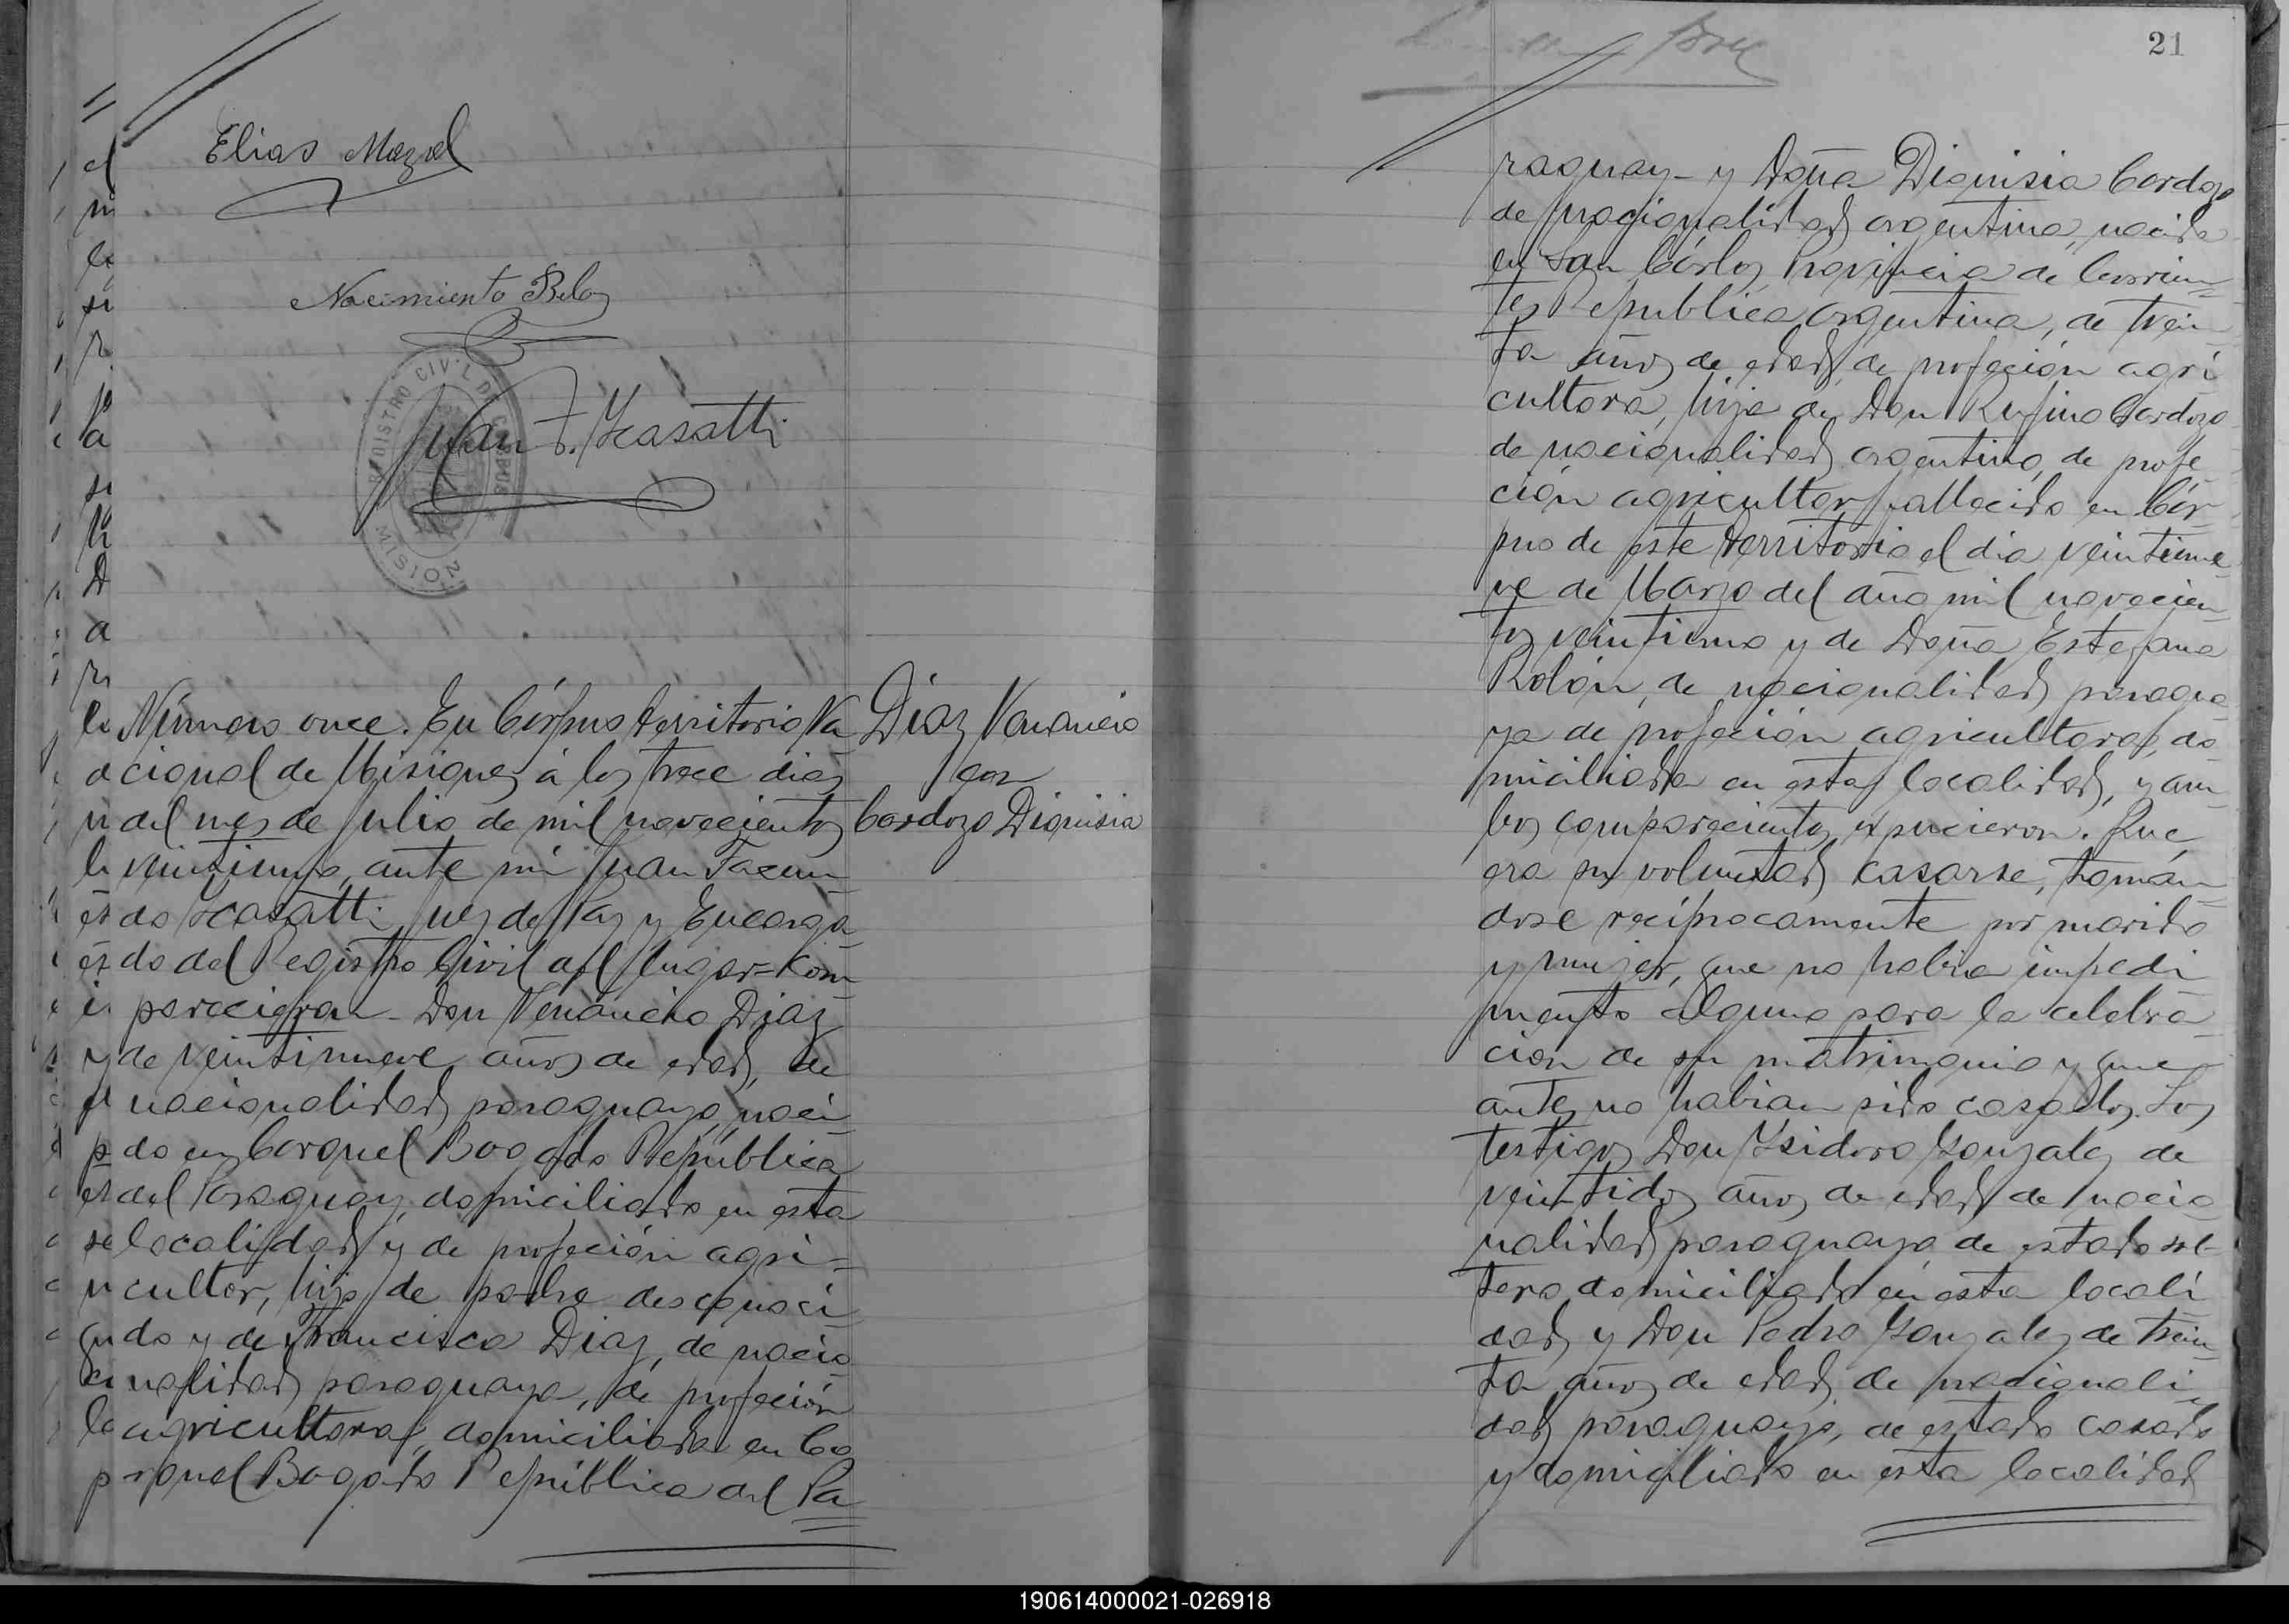 Elias Mazal
Nacimiento Beloz
REGISTRO CIVIL DE CORPUS
MISIONES
Juan F. Scasatti
Número once. En Córpus territorio Na
cional de Misiones á los trece dias
del mes de Julio de mil novecientos
veintiuno, ante mi Juan Facun
do Scasatti Juez de Paz y Encarga
do del Registro Civil del lugar = Com
parecieron - Don Venáncio Diaz
de veintinueve años de edad, de
nacionalidad paraguayo, naci
do en Coronel Bogado República
del Paraguay, domiciliado en esta
localidad y de profeción agri-
cultor, hijo de padre desconoci
do y de Francisca Diaz, de nacio
nalidad paraguaya, de profeción
agricultora, domiciliada en Co
ronel Bogado República del Pa
Diaz Venancio
con
Cardozo Dionisia
21
raguay - y Doña Dionisia Cardozo
de nacionalidad argentina, nacida
en San Cárlos Provincia de Corrien
tes República argentina, de trein
ta años de edad, de profeción agri
cultora, hija de Don Rufino Cardozo
de nacionalidad argentino, de profe
ción agricultor fallecido en Cór
pus de este territorio el dia veintinue
ve de Marzo del año mil novecien
tos veintiuno y de Doña Estefana
Rolón, de nacionalidad paragua
ya de profeción agricultora, do
miciliada en esta localidad, y am
bos comparecientes expucieron. Que
era su voluntad casarse, tomán
dose recíprocamente por marido
y mujer, que no habia impedi
mento alguno para la celebra
ción de su matrimonio y que
antes no habian sido casados. Los
testigos Don Ysidoro Gonzalez de
veintidos años de edad de nacio
nalidad paraguayo de estado sol-
tero domiciliado en esta locali
dad y Don Pedro Gonzalez de trein
ta años de edad, de nacionali
dad paraguayo, de estado casado
y domiciliado en esta localidad
190614000021-026918